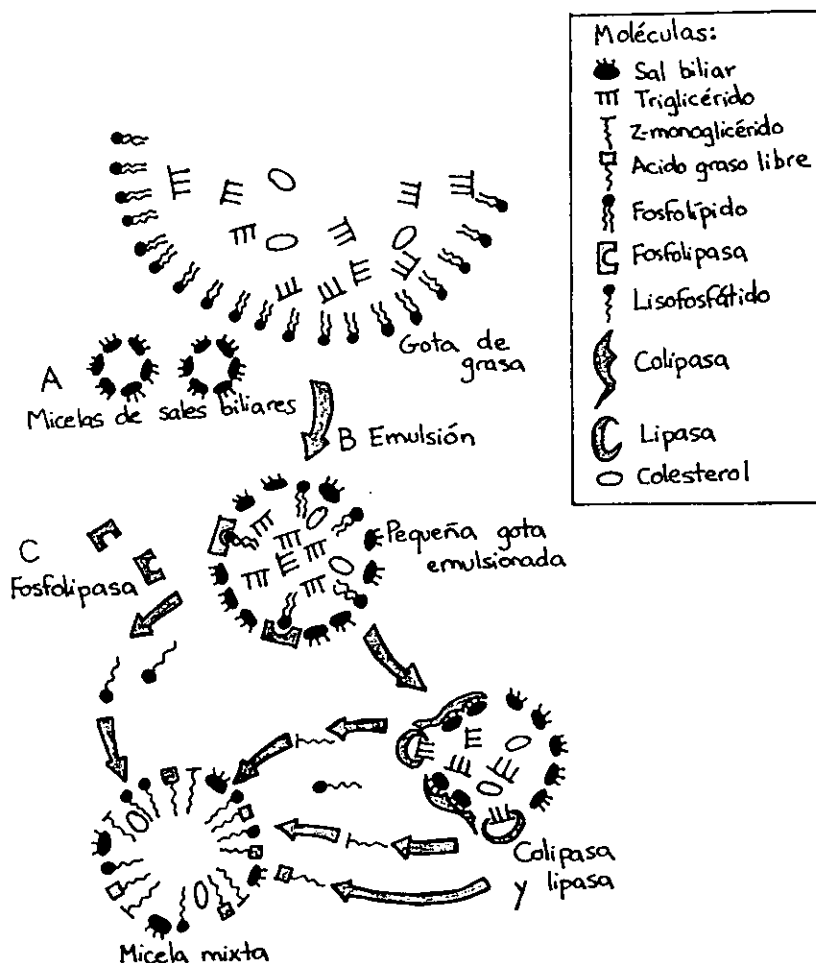 Moléculas:
Sal biliar
Triglicérido
2-monoglicérido
Acido graso libre
Fosfolípido
Fosfolipasa
Lisofosfátido
Colipasa
Lipasa
Colesterol
Gota de
grasa
A
Micelas de sales biliares
B Emulsión
Pequeña gota
emulsionada
C
Fosfolipasa
Colipasa
y lipasa
Micela mixta